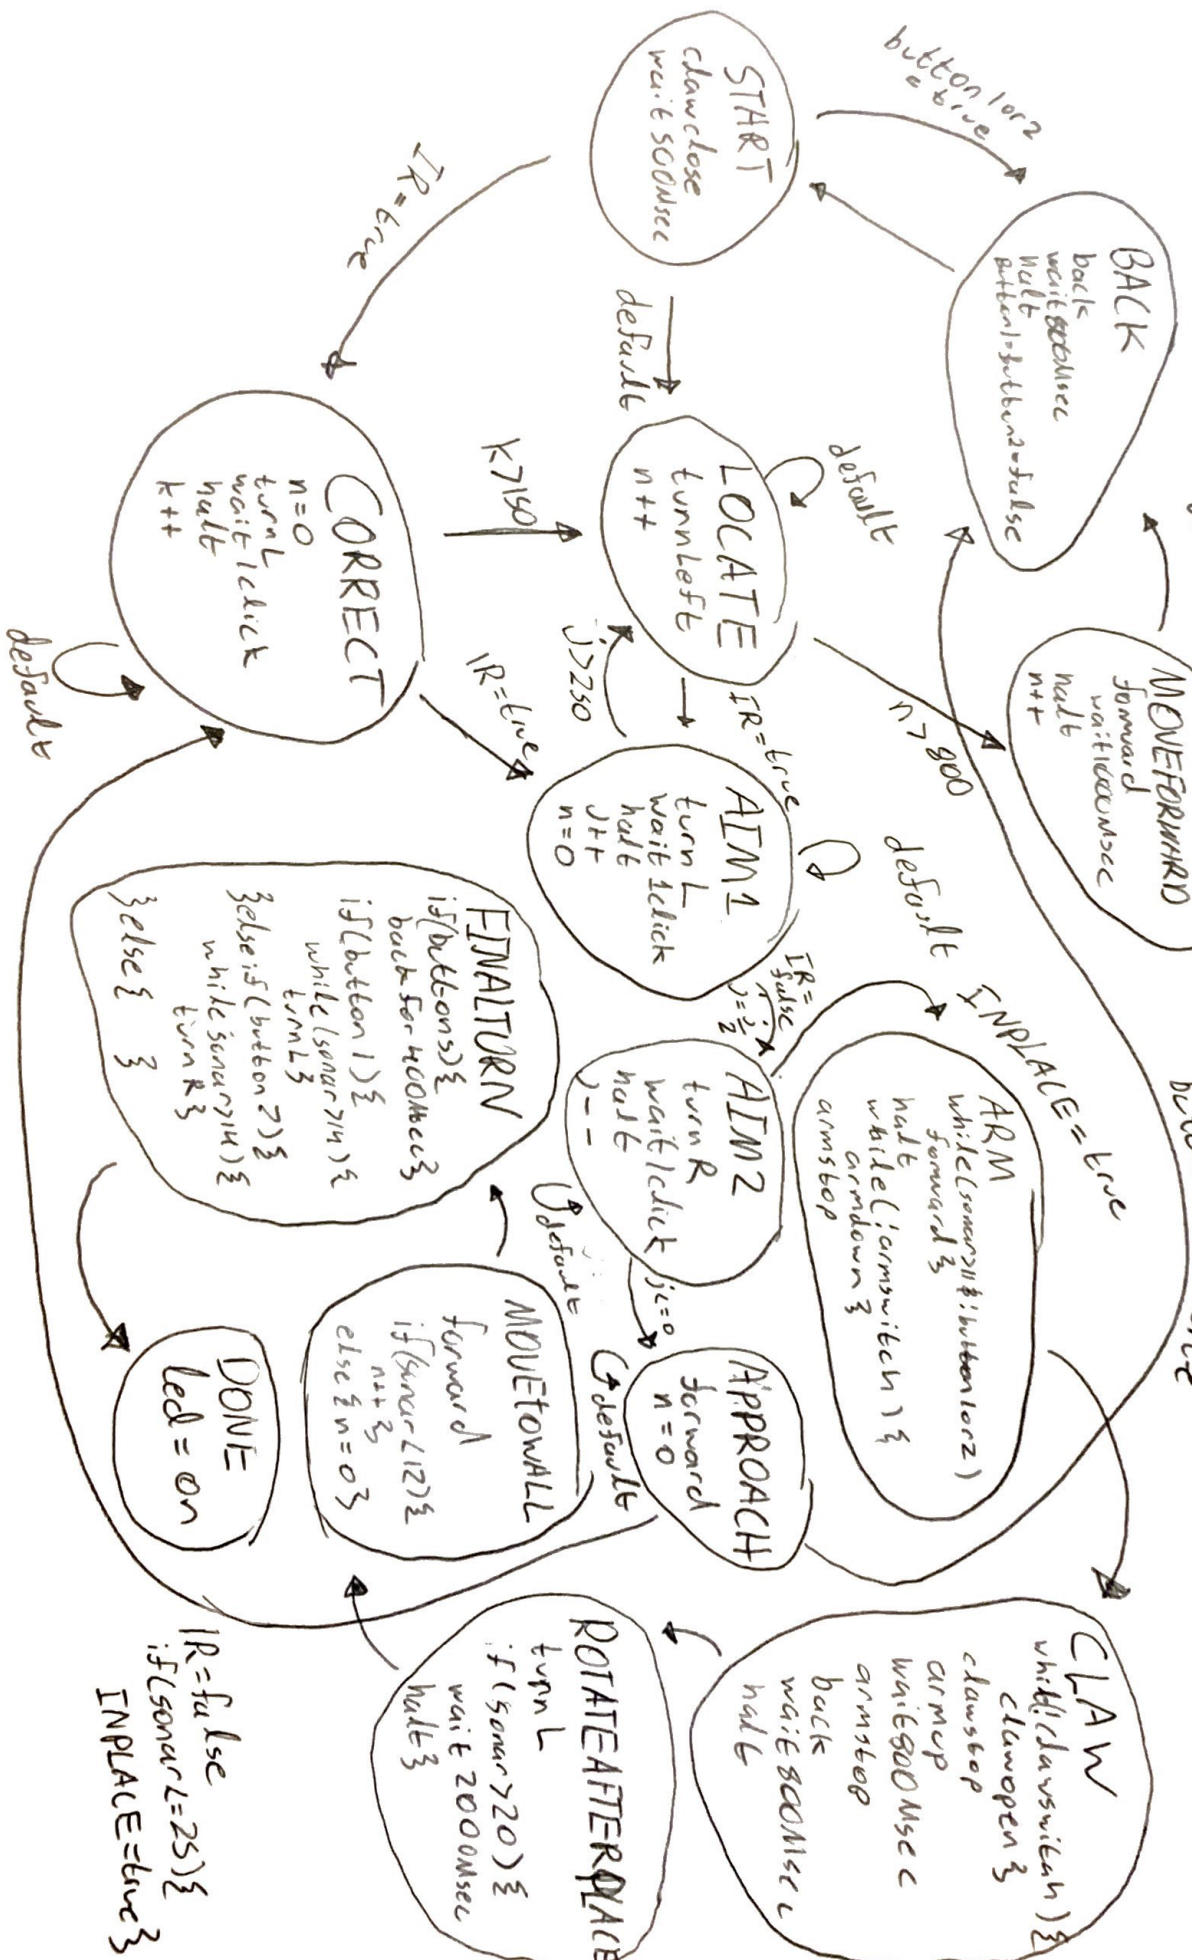 START
clawclose
wait 500Msec
button1or2
= true
BACK
back
wait 800Msec
halt
button1=button2=false
IR=true
default
LOCATE
turnLeft
n++
default
k>150
CORRECT
n=0
turnL
wait 1click
halt
k++
default
IR=true
j>250
IR=true
n>800
MOVEFORWARD
forward
wait1000Msec
halt
n++
AIM1
turn L
wait 1click
halt
j++
n=0
default
IR=
false
j=j/2
AIM2
turn R
wait 1click
halt
j--
default
j<=0
INPLACE=true
ARM
while(sonar>11&!button1or2)
forward}
halt
while(!armswitch){
armdown}
armstop
APPROACH
forward
n=0
default
FINALTURN
if(buttons){
back for 400Msec}
if(button1){
while(sonar>14){
turnL}
}elseif(button2){
while sonar>14){
turn R}
}else{ }
MOVETOWALL
forward
if(sonar<12){
n++}
else{n=0}
DONE
led=on
CLAW
while(!clawswitch){
clawopen}
clawstop
armup
wait800Msec
armstop
back
wait 800Msec
halt
ROTATEAFTERPLACE
turn L
if(sonar>20){
wait 2000Msec
halt}
IR=false
if(sonar<=25){
INPLACE=true}